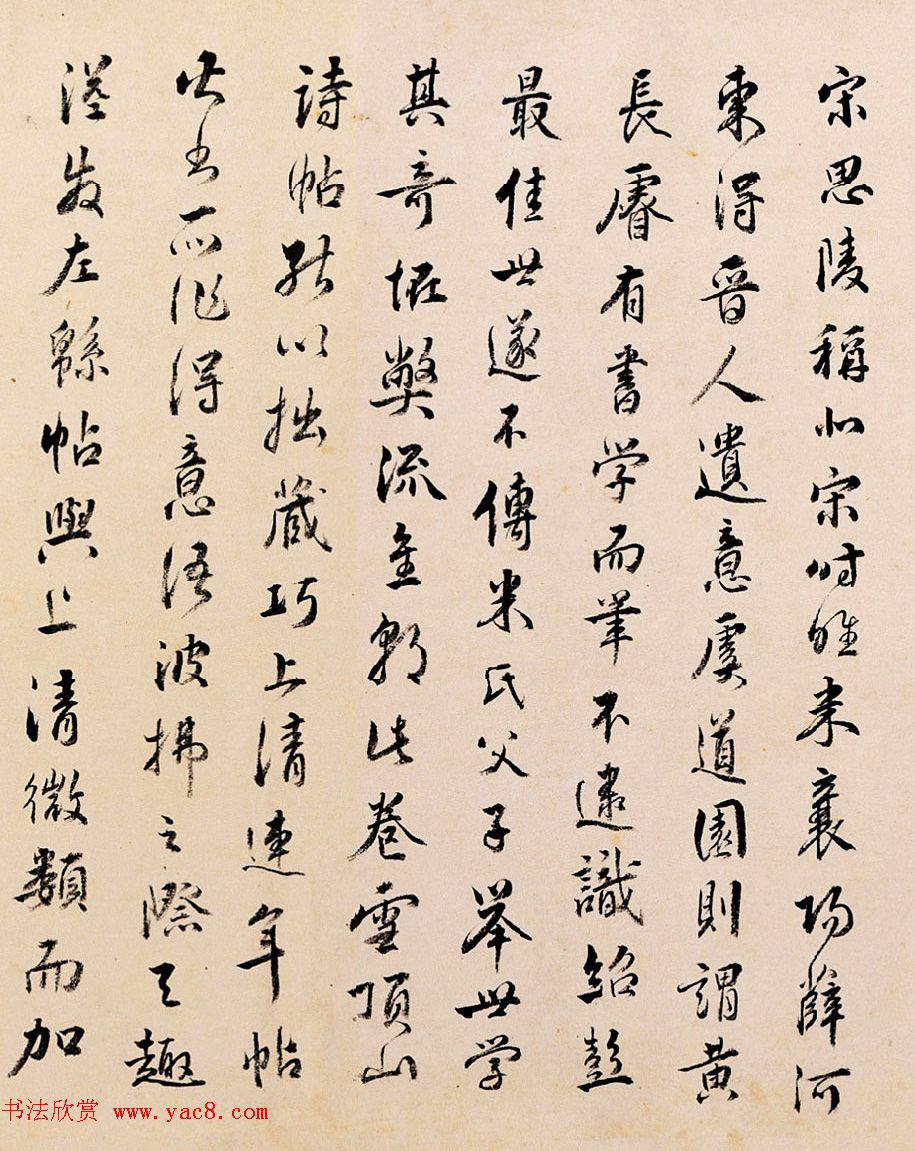 宋思陵稱北宋时唯米襄阳薛河
東得晉人遺意虞道園則謂黄
長睿有書学而筆不逮識紹彭
最佳世遂不傳米氏父子举世学
其奇怪弊流金朝此卷雪頂山
詩帖能以拙藏巧上清連年帖
所作得意語波拂之際天趣
溢发左緜帖與上清微類而加
书法欣赏 www.yac8.com